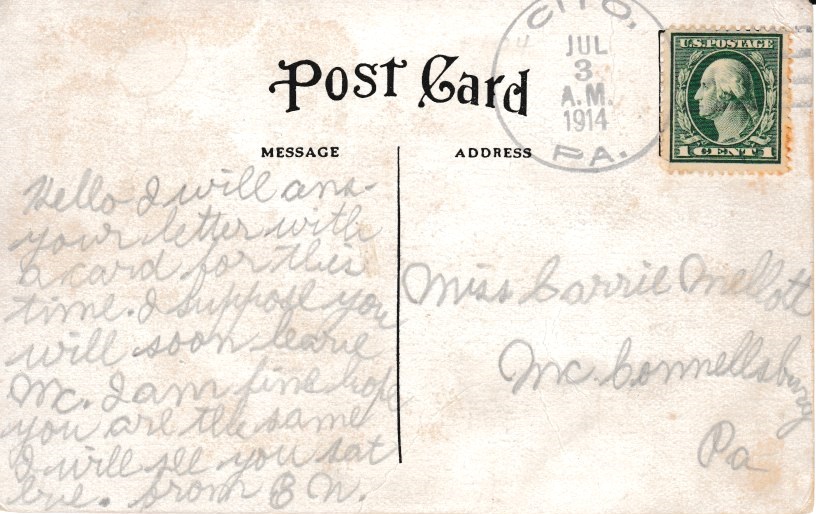 CITO,
JUL
3
A.M.
1914
PA.
U.S. POSTAGE
1 CENT 1
Post Card
MESSAGE
ADDRESS
Hello I will ans-
your letter with
a card for this
time. I suppose you
will soon leave
Mc. I am fine hope
you are the same
I will see you sat
eve. from B N.
Miss Carrie Mellott
Mc Connellsburg
Pa